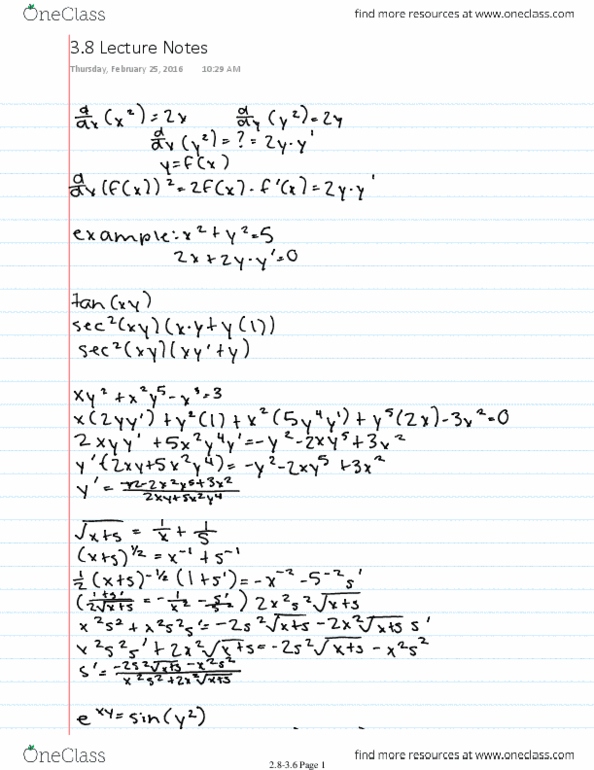 OneClass find more resources at www.oneclass.com
3.8 Lecture Notes
Thursday, February 25, 2016 10:29 AM
d/dx (x²) = 2x d/dy (y²) = 2y
d/dx (y²) = ? = 2y·y'
y = f(x)
d/dx (f(x))² = 2f(x)·f'(x) = 2y·y'
example: x² + y² = 5
2x + 2y·y' = 0
tan(xy)
sec²(xy)(x·y + y(1))
sec²(xy)(xy' + y)
xy² + x²y⁵ - x³ = 3
x(2yy') + y²(1) + x²(5y⁴y') + y⁵(2x) - 3x² = 0
2xyy' + 5x²y⁴y' = -y² - 2xy⁵ + 3x²
y'(2xy + 5x²y⁴) = -y² - 2xy⁵ + 3x²
2xy + 5x²y⁴
√x+s = 1/x + 1/s
(x+s)^½ = x⁻¹ + s⁻¹
½(x+s)^-½ (1+s') = -x⁻² - s⁻² s'
(1+s'/2√x+s = -1/x² - s'/s²) 2x²s²√x+s
x²s² + x²s²s' = -2s²√x+s - 2x²√x+s s'
x²s²s' + 2x²√x+s = -2s²√x+s - x²s²
s' = -2s²√x+s - x²s² / x²s² + 2x²√x+s
e^xy = sin(y²)
OneClass find more resources at www.oneclass.com
2.8-3.6 Page 1